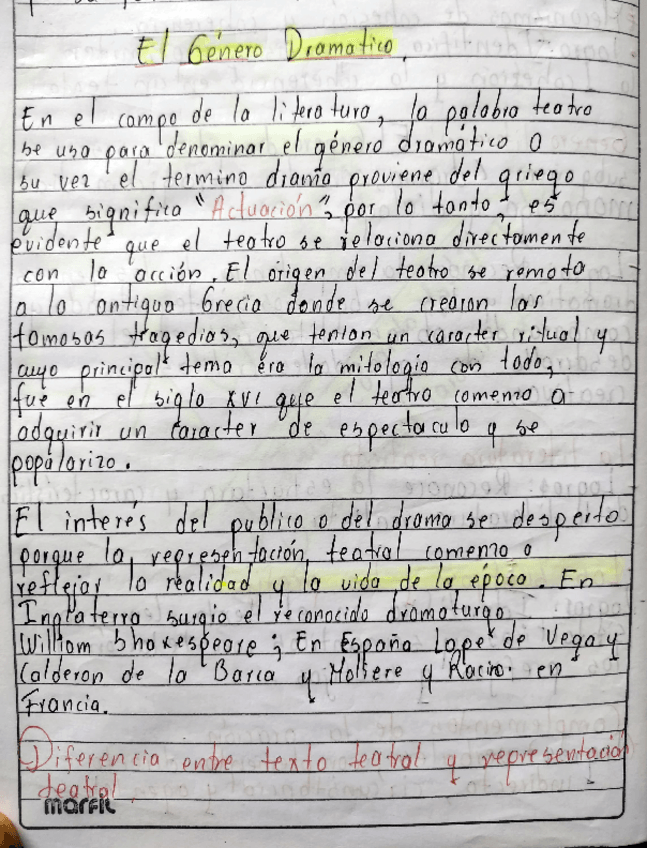 El Género Dramatico
En el campo de la literatura, la palabra teatro
se usa para denominar el género dramático a
su vez el termino drama proviene del griego
que significa "Actuación", por lo tanto, es
evidente que el teatro se relaciona directamente
con la acción. El origen del teatro se remota
a la antigua Grecia donde se crearon las
famosas tragedias, que tenian un caracter ritual y
cuyo principal tema era la mitologia con todo,
fue en el siglo XVI que el teatro comenzo a
adquirir un caracter de espectaculo y se
popularizo.
El interés del publico o del drama se desperto
porque la representación teatral comenzo a
reflejar la realidad y la vida de la época. En
Inglaterra surgio el reconocido dramaturgo
William Shakespeare; En España Lope de Vega y
Calderon de la Barca y Moliere y Racine en
Francia.
Diferencia entre texto teatral y representación
teatral.
marfil